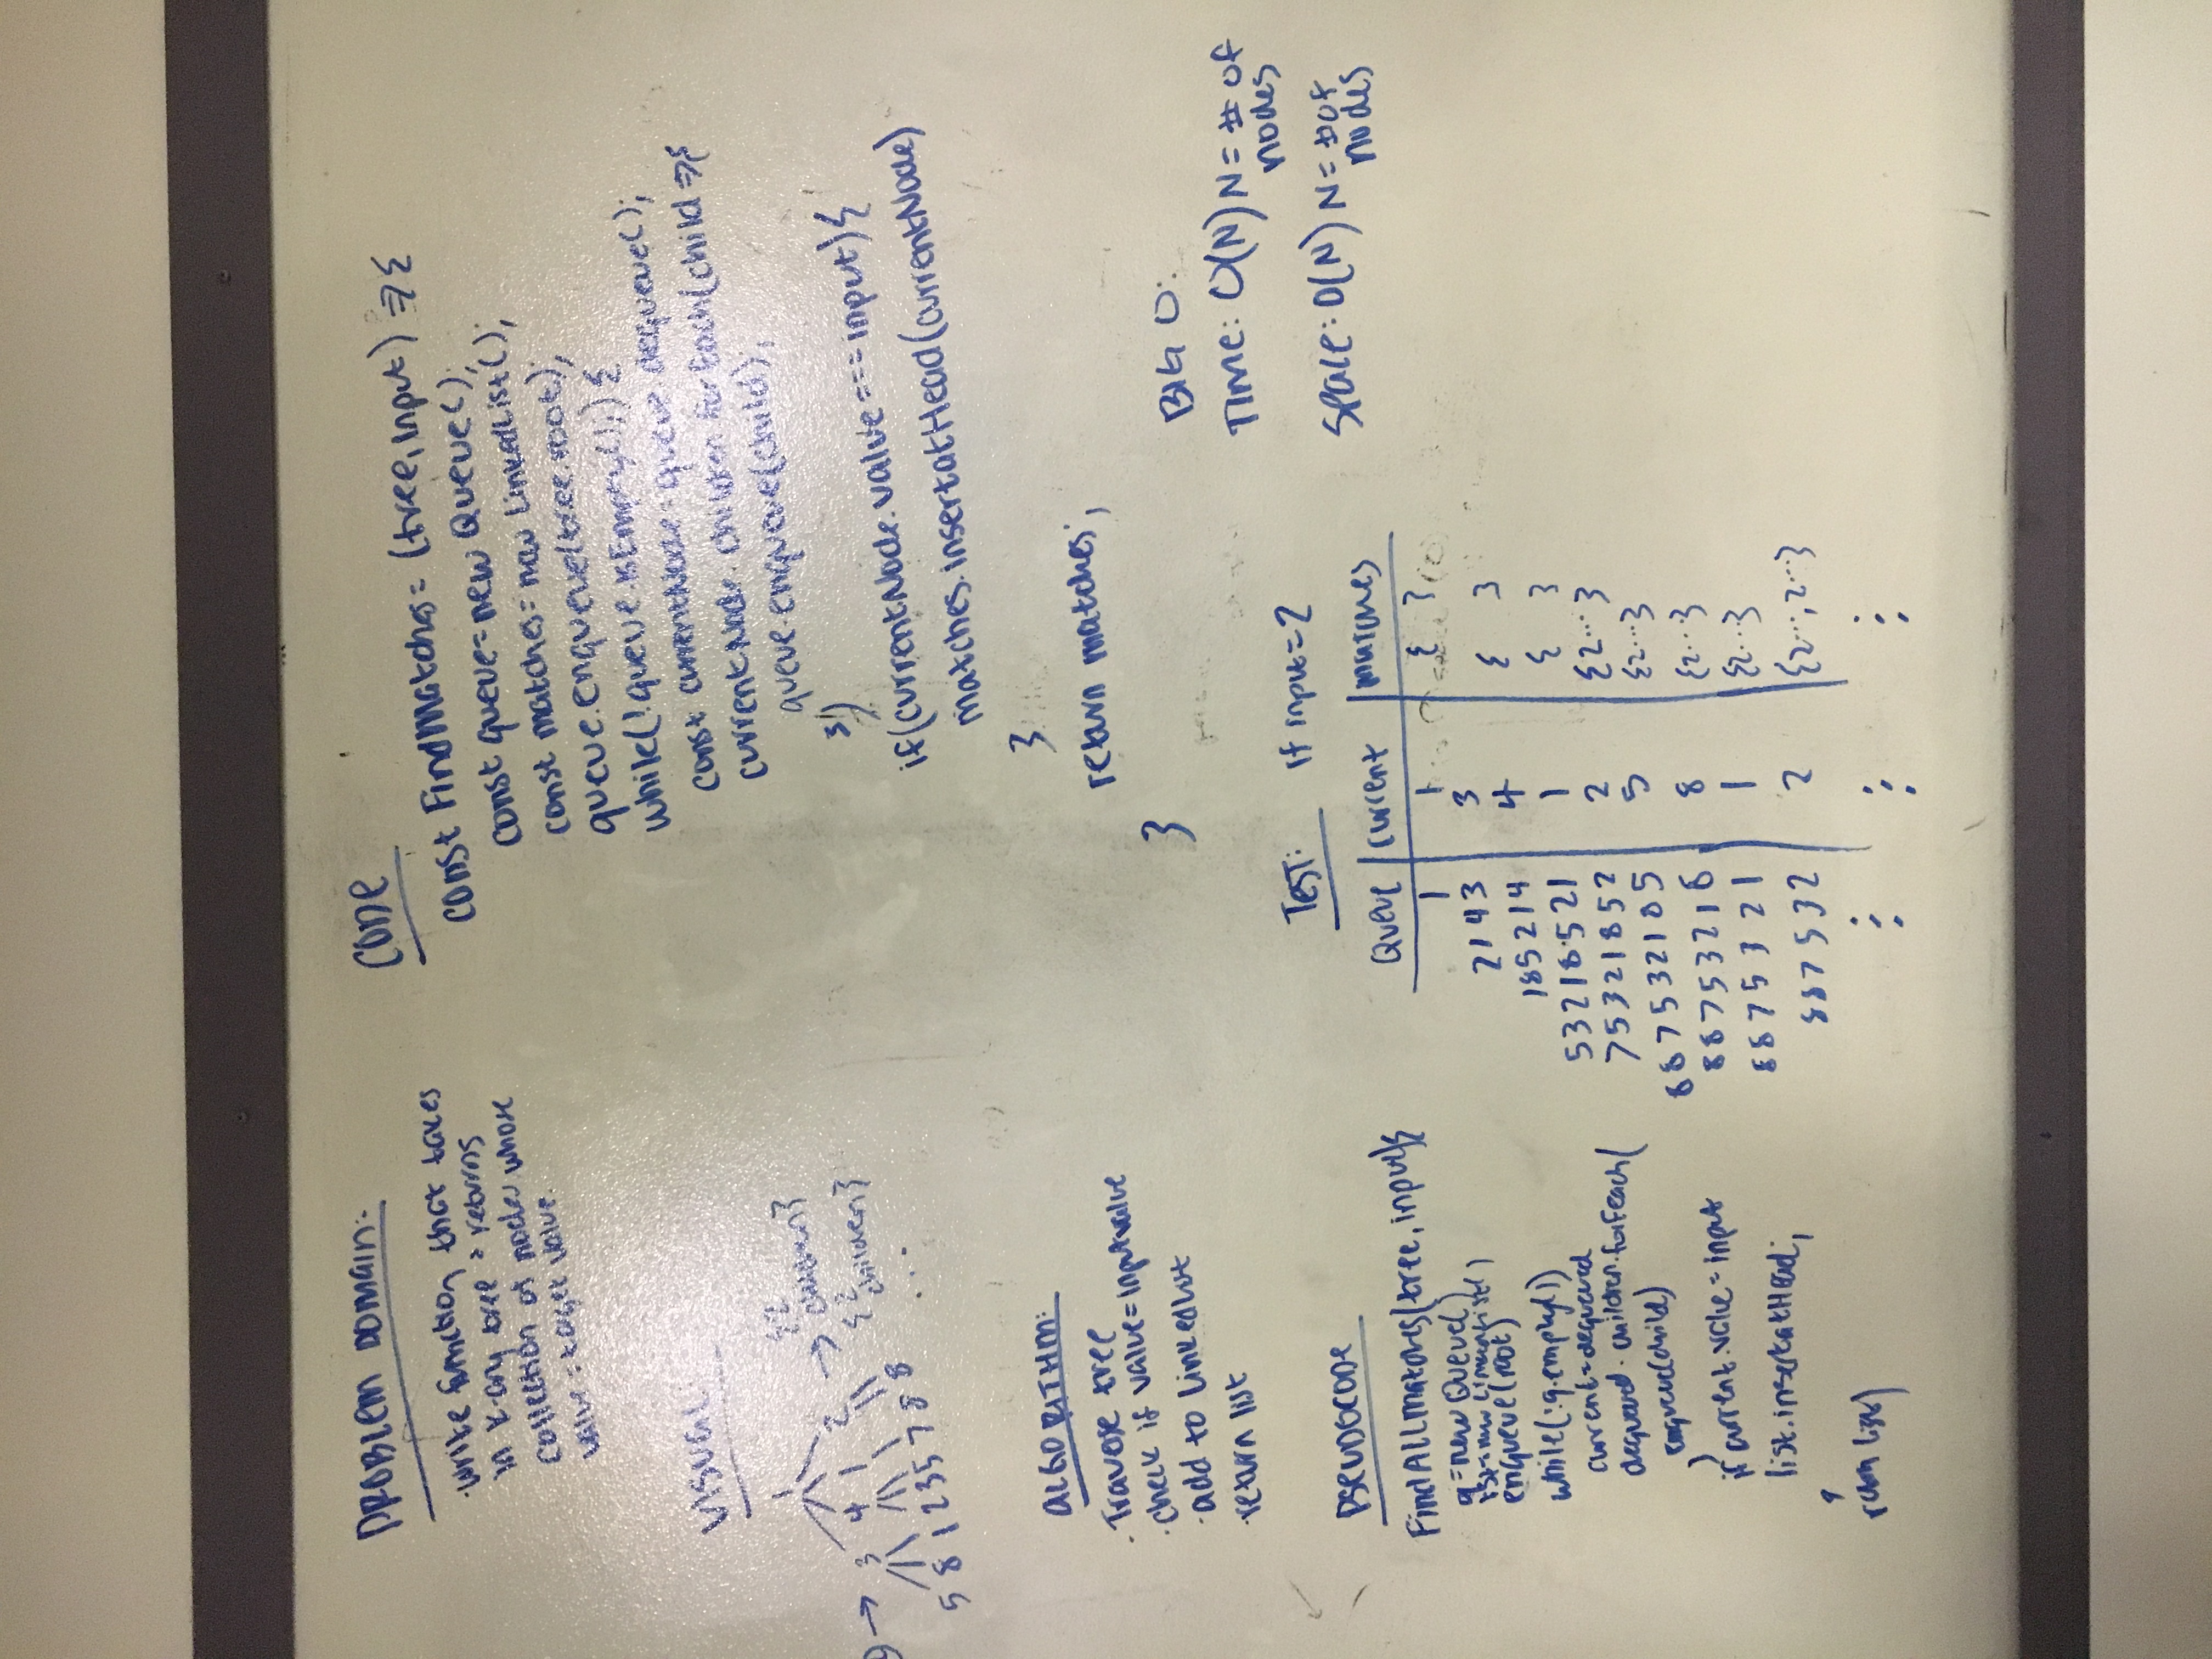 PROBLEM DOMAIN:
·write function that takes
in k-ary tree & returns
collection of nodes whose
value = target value.
VISUAL:
1
3 4 1 2
5 8 1 2 3 5 7 8 8
2 → 3 → {2
children}
{2
children}
...
ALGORITHM:
· Traverse tree
· check if value = input value
· add to linked list
· return list
PSEUDOCODE
FindAllMatches(tree, input){
q = new Queue()
enqueue(root)
while(!q.empty())
current = dequeued
dequeued.children.forEach(
enqueue(child)
)
if current.value = input
list.insertatHead;
return list)
CODE
const FindMatches = (tree, input) => {
const queue = new Queue();
const matches = new LinkedList();
queue.enqueue(tree.root);
while(!queue.isEmpty();) {
const currentNode = queue.dequeue();
currentNode.children.forEach(child => {
queue.enqueue(child);
})
if(currentNode.value === input){
matches.insertatHead(currentNode)
}
return matches;
}
BIG O:
TIME: O(N) N = # of
nodes
SPACE: O(N) N = # of
nodes
TEST: if input = 2
Queue | current | matches
1 1 { }
2143 3 { }
185214 4 { }
53218521 1 {2...}
75321852 2 {2...}
887532185 5 {2...}
88753218 8 {2...}
8875321 1 {2...,2...}
887532 2